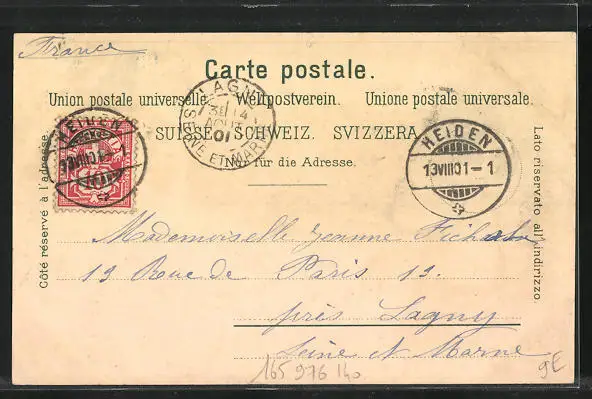 France
Carte postale.
Union postale universelle. Weltpostverein. Unione postale universale.
SUISSE. SCHWEIZ. SVIZZERA.
Nur für die Adresse.
Côté réservé à l'adresse.
Lato riservato all'indirizzo.
HEIDEN
13 VIII 01
LAGNY
14
01
SEINE ET MARNE
HEIDEN
13 VIII 01 - 1
Mademoiselle Jeanne
19 Rue de Paris 19.
près Lagny
Seine et Marne
165 976 140
9E